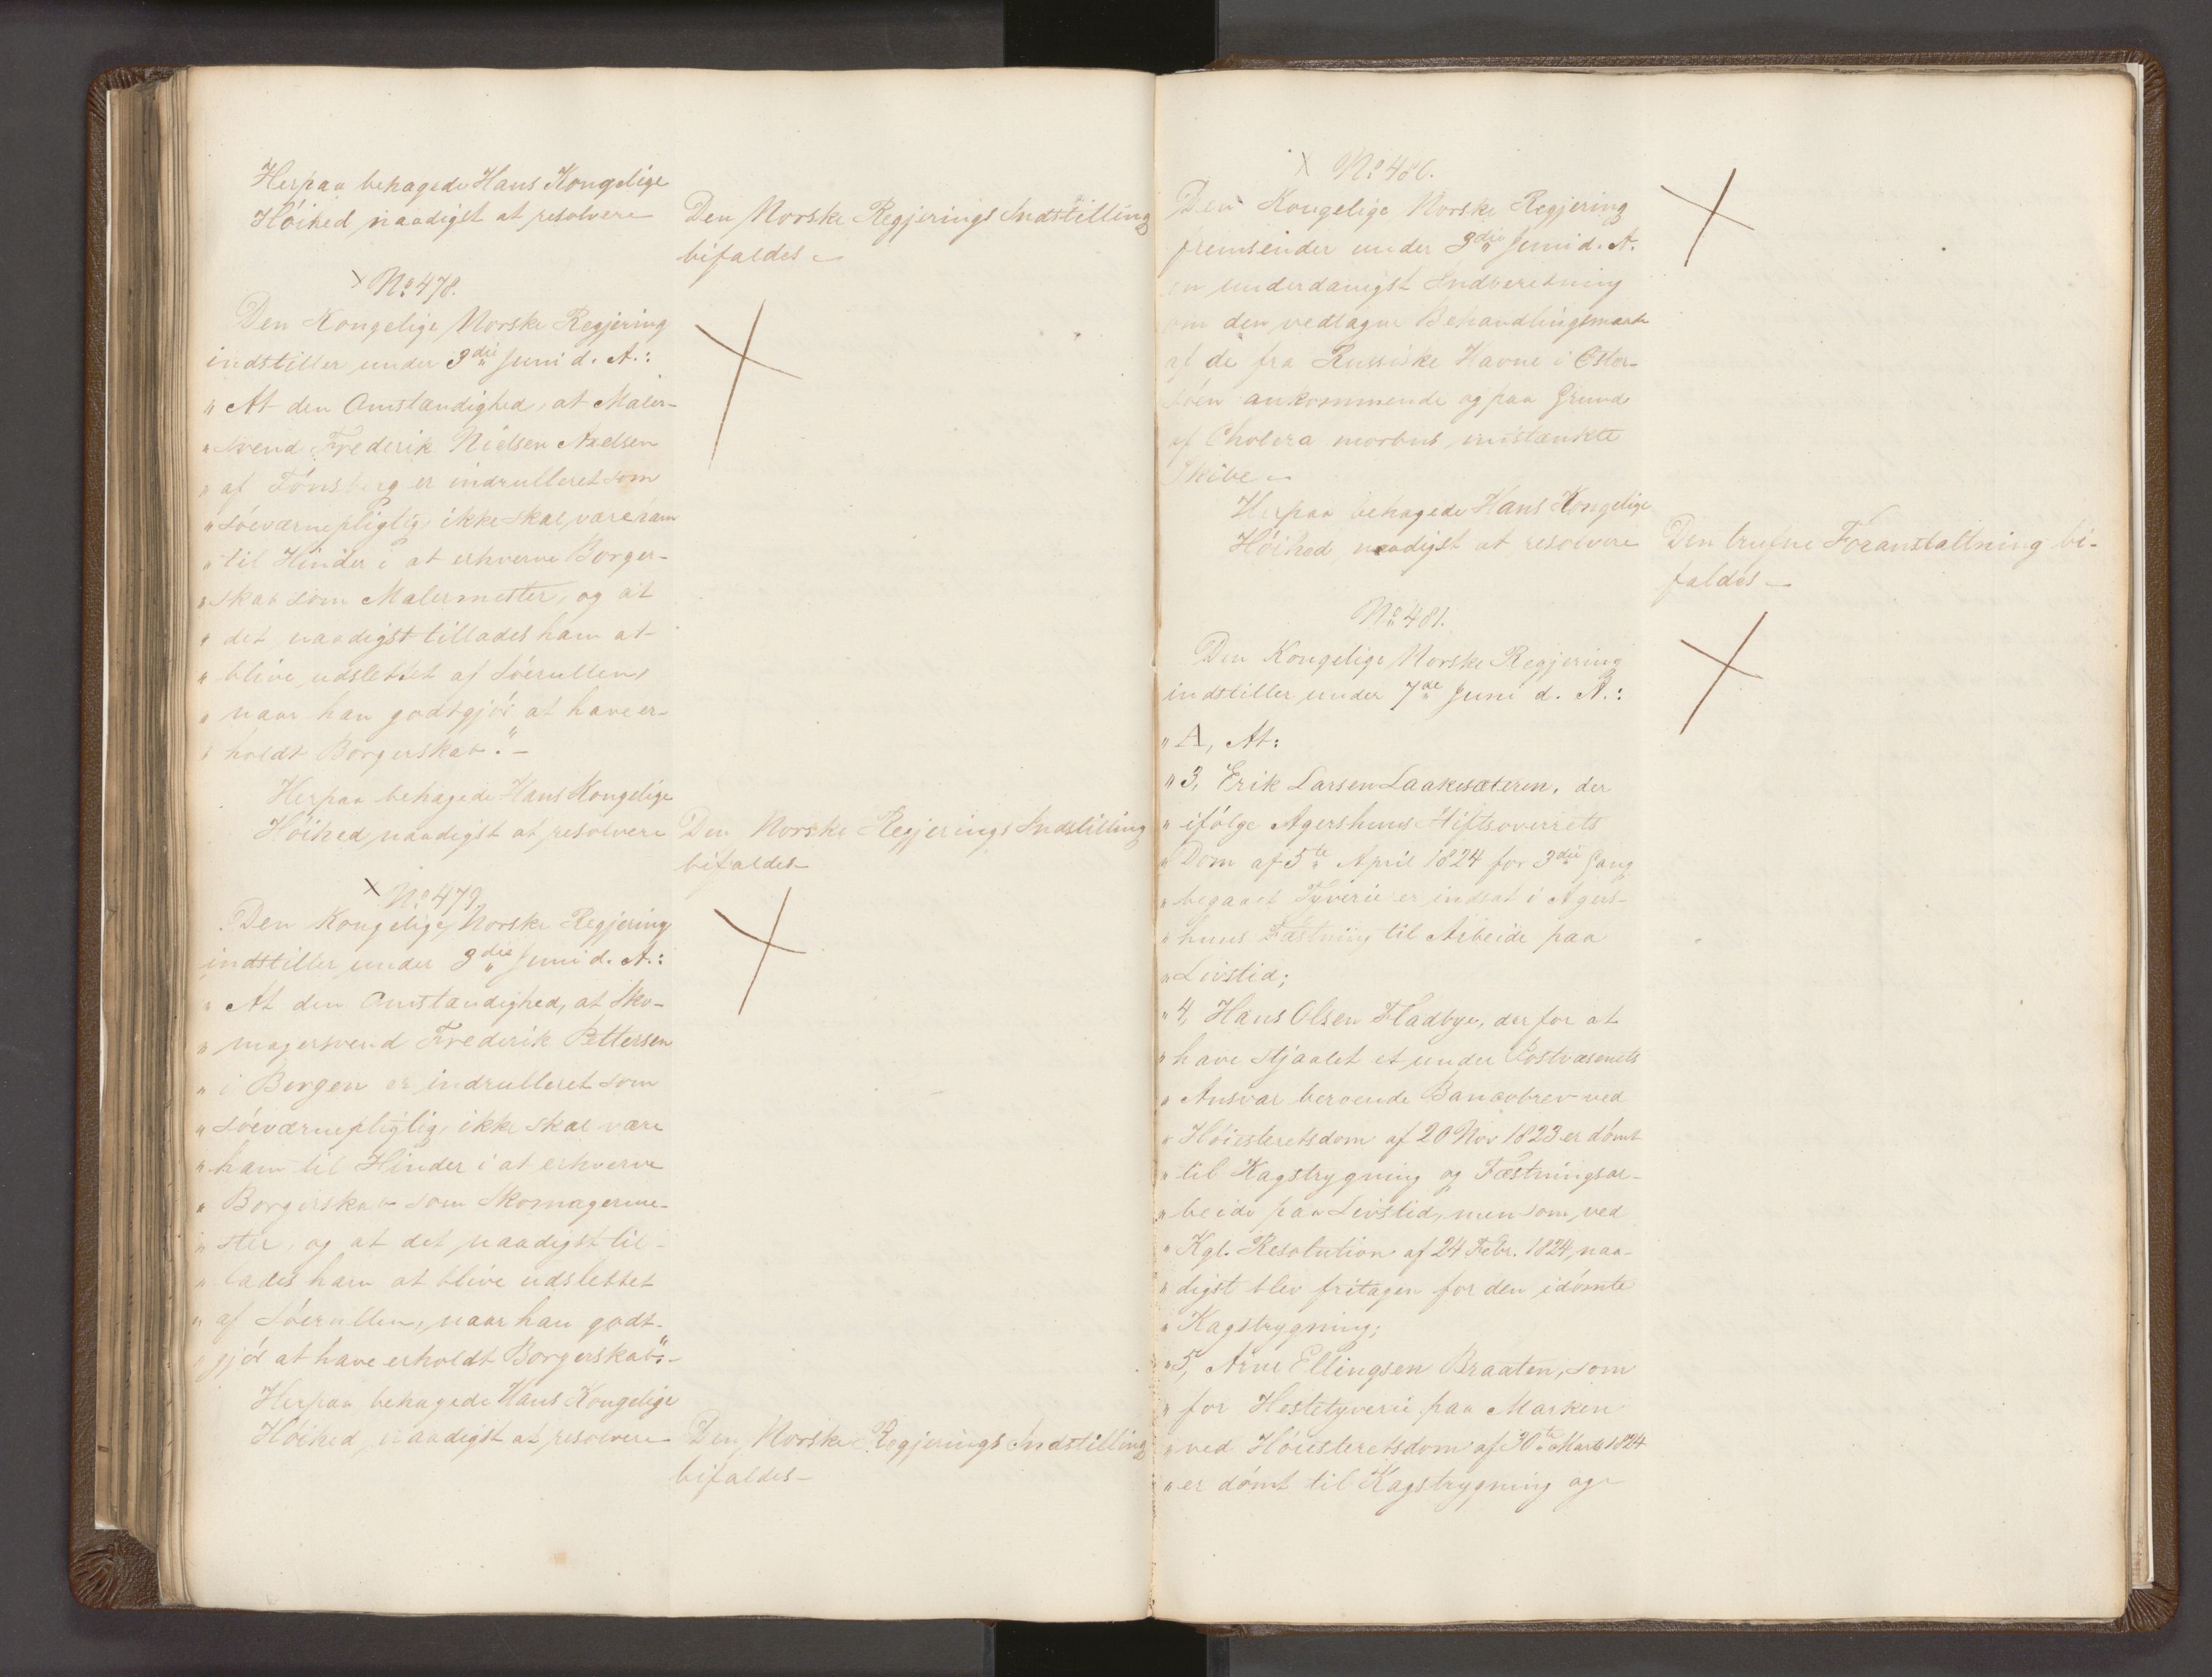 Herpaa behagede Hans Kongelige
Höihed naadigst at resolvere
Den Norske Regjerings Indstilling
bifaldes
No 478.
Den Kongelige Norske Regjering
indstiller under 3die Juni d. A.:
" At den Omstændighed, at Maler-
" svend Frederik Nielsen Axelsen
" af Tönsberg er indrulleret som
" söeværnepligtig, ikke skal være ham
" til Hinder i at erhverve Borger-
" skab som Malermester, og at
" det naadigst tillades ham at
" blive udslettet af Söerullen,
" naar han godtgjör at have er-
" holdt Borgerskab." -
Herpaa behagede Hans Kongelige
Höihed naadigst at resolvere
Den Norske Regjerings Indstilling
bifaldes
No 479.
Den Kongelige Norske Regjering
indstiller under 3die Juni d. A.:
" At den Omstændighed, at Sko-
" magersvend Frederik Pettersen
" i Bergen er indrulleret som
" söeværnepligtig, ikke skal være
" ham til Hinder i at erhverve
" Borgerskab som Skomagerme-
" ster, og at det naadigst til-
" lades ham at blive udslettet
" af Söerullen, naar han godt-
" gjör at have erholdt Borgerskab." -
Herpaa behagede Hans Kongelige
Höihed naadigst at resolvere
Den Norske Regjerings Indstilling
bifaldes
No 480.
Den Kongelige Norske Regjering
fremsender under 3die Juni d. A.
en underdanigst Indberetning
om den vedtagne Behandlingsmaade
af de fra Russiske Havne i Öster-
söen ankommende og paa Grund
af Cholera morbus mistænkte
Skibe
Herpaa behagede Hans Kongelige
Höihed naadigst at resolvere
Den trufne Foranstaltning bi-
faldes
No 481.
Den Kongelige Norske Regjering
indstiller under 7de Juni d. A.:
" A, At:
" 3, Erik Larsen Laakesæteren, der
" ifölge Agershuus Stiftsoverrets
" Dom af 5te April 1824 for 3die Gang
" begaaet Tyverie er indsat i Agers-
" huus Fæstning til Arbeide paa
" Livstid;
" 4, Hans Olsen Fladbye, der for at
" have stjaalet et under Postvæsenets
" Ansvar beroende Bancobrev ved
" Höiesteretsdom af 20 Nov 1823 er dömt
" til Kagstrygning og Fæstningsar-
" beide paa Livstid, men som ved
" Kgl. Resolution af 24 Febr. 1824, naa-
" digst blev fritagen for den idömte
" Kagstrygning;
" 5, Arne Ellingsen Braaten, som
" for Hestetyverie paa Marken
" ved Höiesteretsdom af 30te Marts 1824
" er dömt til Kagstrygning og